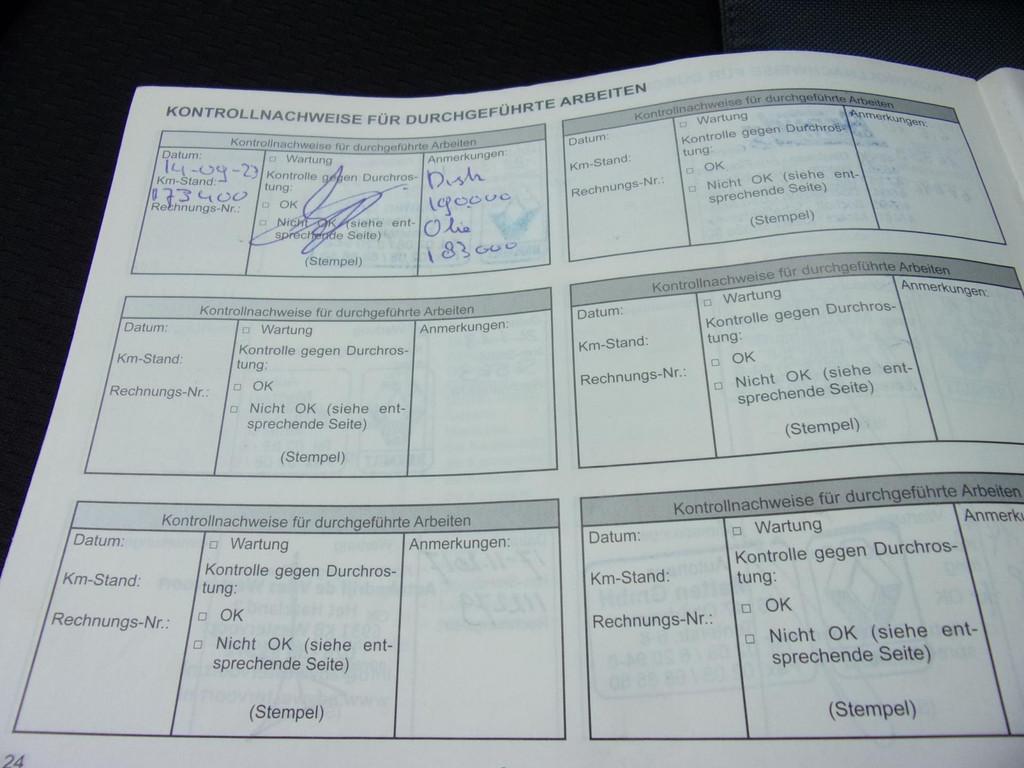 KONTROLLNACHWEISE FÜR DURCHGEFÜHRTE ARBEITEN
Kontrollnachweise für durchgeführte Arbeiten
Datum:
14-09-23
Km-Stand:
173400
Rechnungs-Nr.:
Wartung
Kontrolle gegen Durchros-
tung:
OK
Nicht OK (siehe ent-
sprechende Seite)
(Stempel)
Anmerkungen:
190000
Olie
183000
Kontrollnachweise für durchgeführte Arbeiten
Datum:
Km-Stand:
Rechnungs-Nr.:
Wartung
Kontrolle gegen Durchros-
tung:
OK
Nicht OK (siehe ent-
sprechende Seite)
(Stempel)
Anmerkungen:
Kontrollnachweise für durchgeführte Arbeiten
Datum:
Km-Stand:
Rechnungs-Nr.:
Wartung
Kontrolle gegen Durchros-
tung:
OK
Nicht OK (siehe ent-
sprechende Seite)
(Stempel)
Anmerkungen:
Kontrollnachweise für durchgeführte Arbeiten
Datum:
Km-Stand:
Rechnungs-Nr.:
Wartung
Kontrolle gegen Durchros-
tung:
OK
Nicht OK (siehe ent-
sprechende Seite)
(Stempel)
Anmerkungen:
Kontrollnachweise für durchgeführte Arbeiten
Datum:
Km-Stand:
Rechnungs-Nr.:
Wartung
Kontrolle gegen Durchros-
tung:
OK
Nicht OK (siehe ent-
sprechende Seite)
(Stempel)
Anmerkungen:
Kontrollnachweise für durchgeführte Arbeiten
Datum:
Km-Stand:
Rechnungs-Nr.:
Wartung
Kontrolle gegen Durchros-
tung:
OK
Nicht OK (siehe ent-
sprechende Seite)
(Stempel)
Anmerku
24